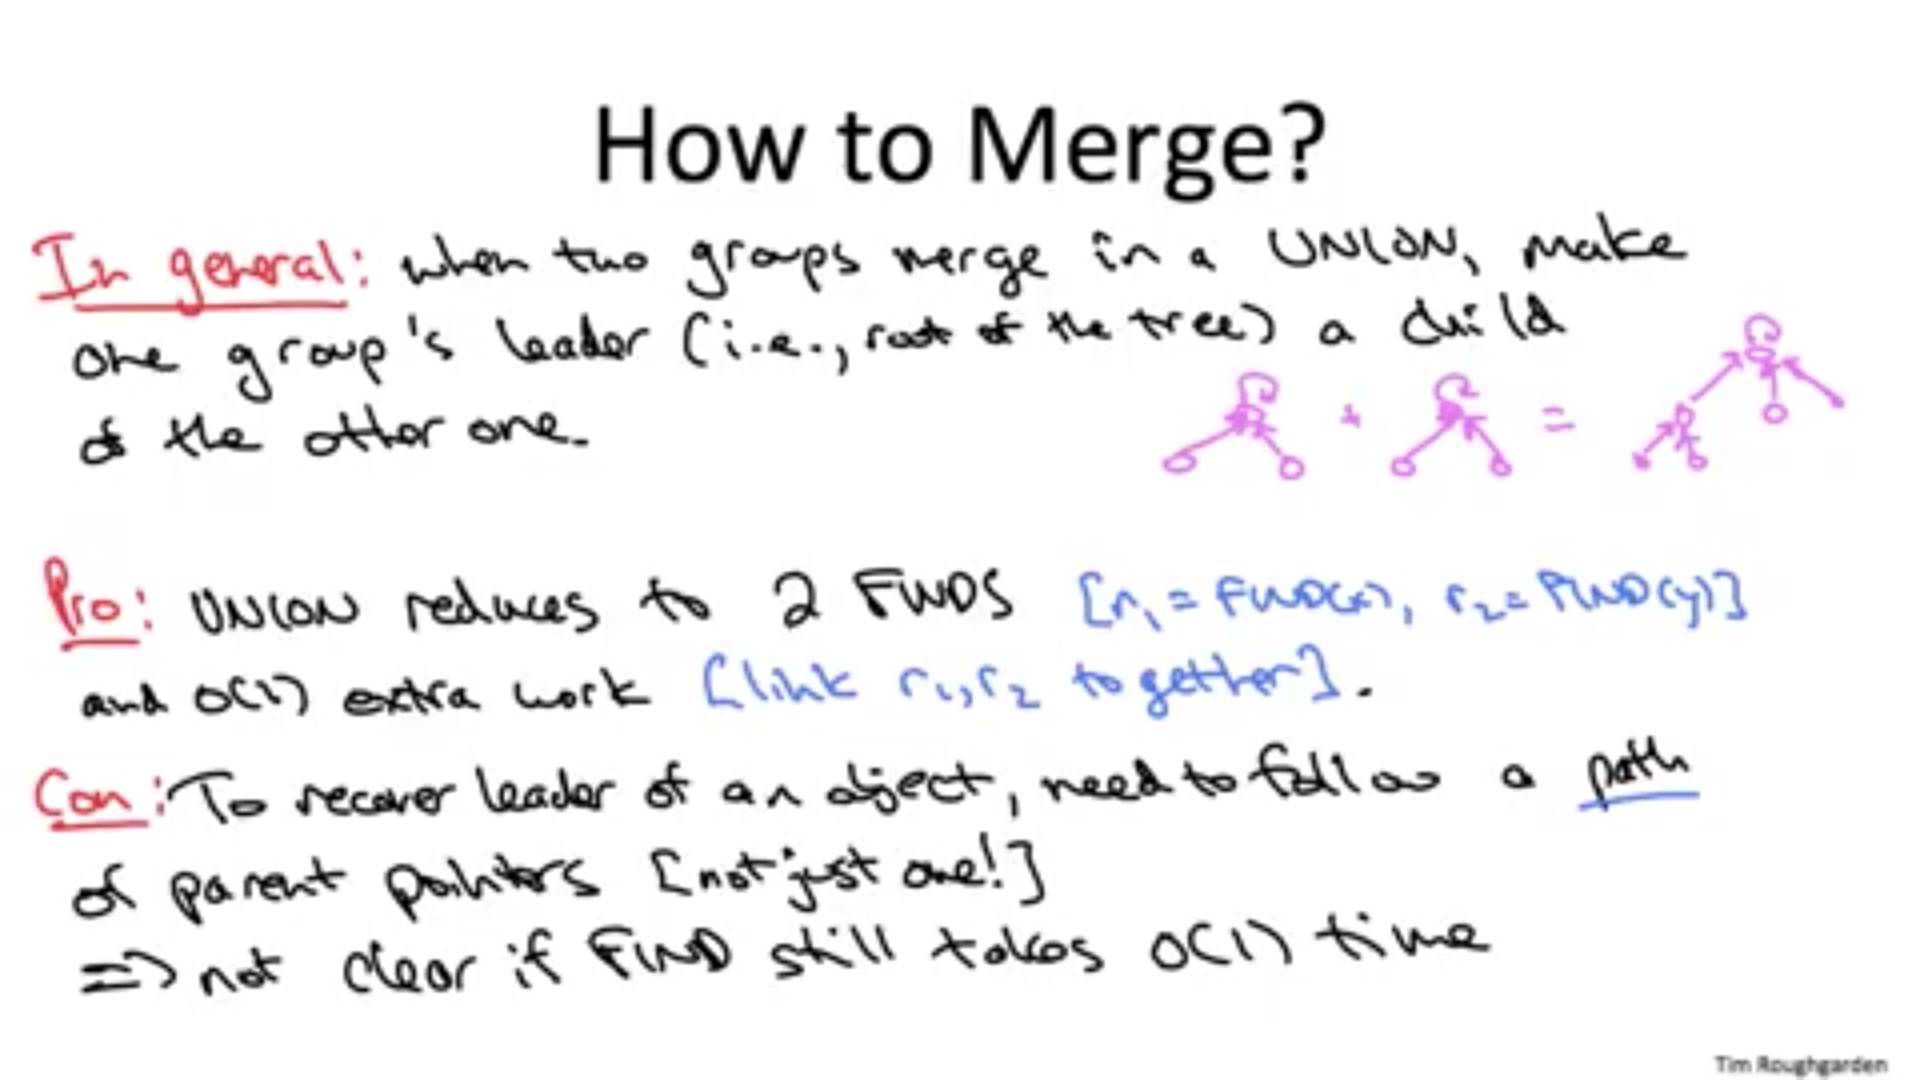 How to Merge?
In general: when two groups merge in a UNION, make
one group's leader (i.e., root of the tree) a child
of the other one.
+ =
Pro: UNION reduces to 2 FINDS [r1 = FIND(x), r2 = FIND(y)]
and O(1) extra work [link r1,r2 together].
Con: To recover leader of an object, need to follow a path
of parent pointers [not just one!]
=> not clear if FIND still takes O(1) time
Tim Roughgarden